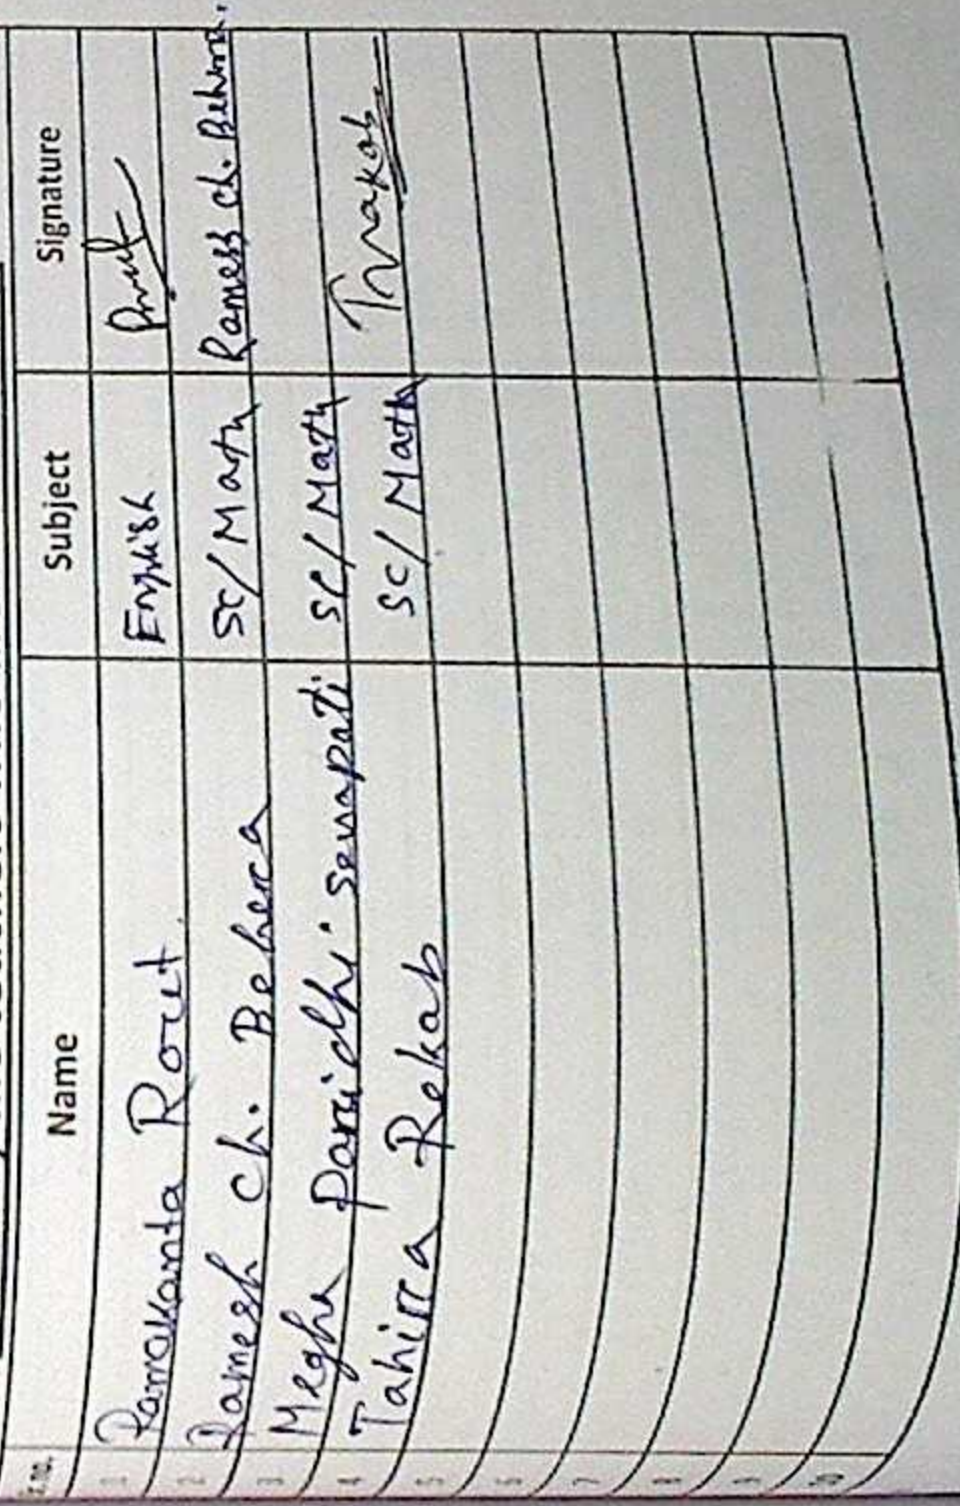 Sr.no. Name Subject Signature
1 Ramakanta Rout English
2 Ramesh Ch. Behera Sc/Math Ramesh Ch. Behera.
3 Megha Paridhi Senapati Sc/Math
4 Tahirra Rekab Sc/Math Trakab
5
6
7
8
9
10